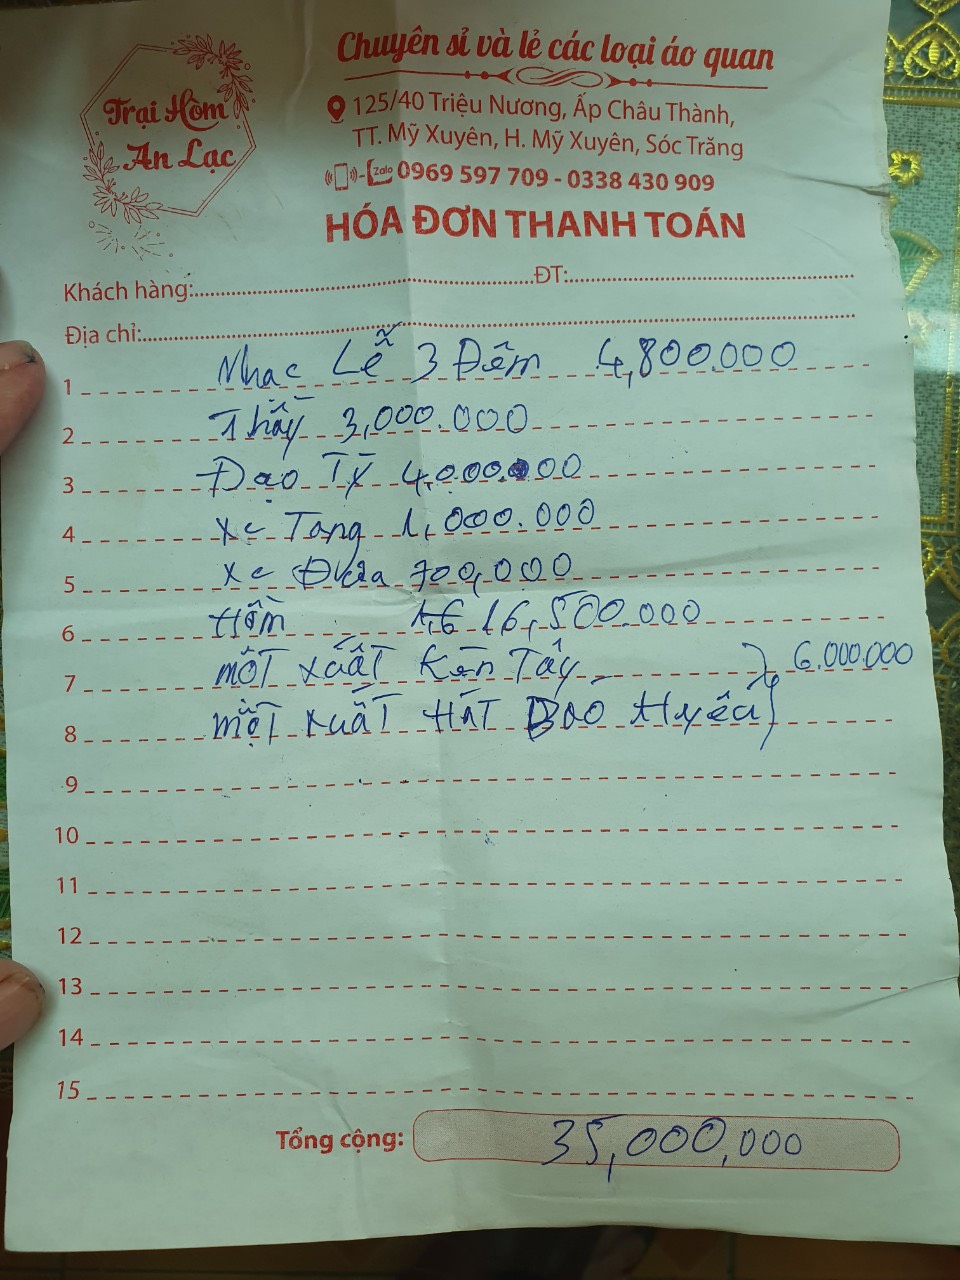 Trại Hòm
An Lạc
Chuyên sỉ và lẻ các loại áo quan
125/40 Triệu Nương, Ấp Châu Thành,
TT. Mỹ Xuyên, H. Mỹ Xuyên, Sóc Trăng
Zalo 0969 597 709 - 0338 430 909
HÓA ĐƠN THANH TOÁN
Khách hàng: ĐT:
Địa chỉ:
1 Nhạc Lễ 3 Đêm 4,800.000
2 Thầy 3,000.000
3 Đạo Tỳ 4,000.000
4 xe Tang 1,000.000
5 xe Đưa 700,000
6 Hòm 16,500.000
7 một xuất Kèn Tây 6.000.000
8 một xuất Hát Báo Hyếu
9
10
11
12
13
14
15
Tổng cộng: 35,000,000